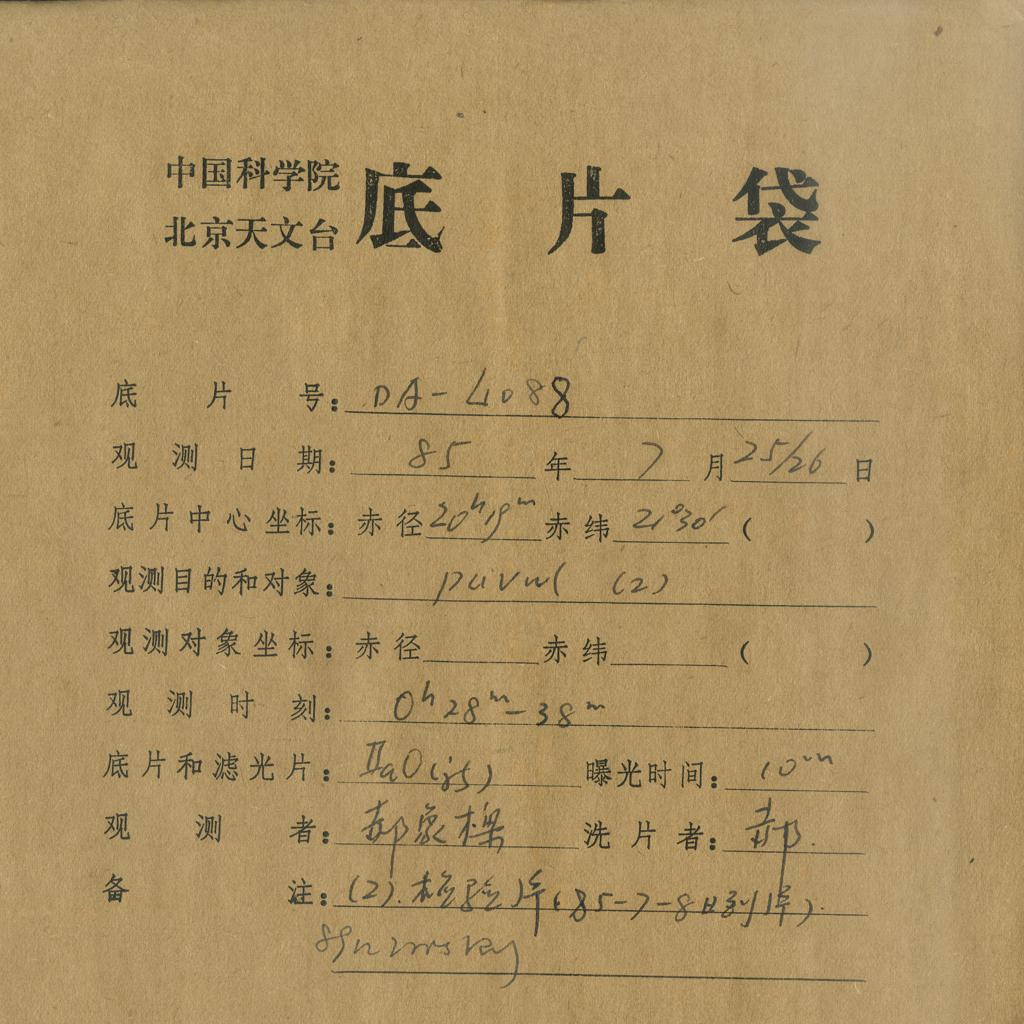 中国科学院
北京天文台 底片袋
底片号: DA-4088
观测日期: 85年 7月 25/26日
底片中心坐标: 赤径 20h19m 赤纬 21°30′ ( )
观测目的和对象: (2)
观测对象坐标: 赤径 赤纬 ( )
观测时刻: 0h28m-38m
底片和滤光片: IIaO 曝光时间: 10m
观测者: 郝象樑 洗片者: 郝.
备注: (2). 检验片(85-7-8日到片).